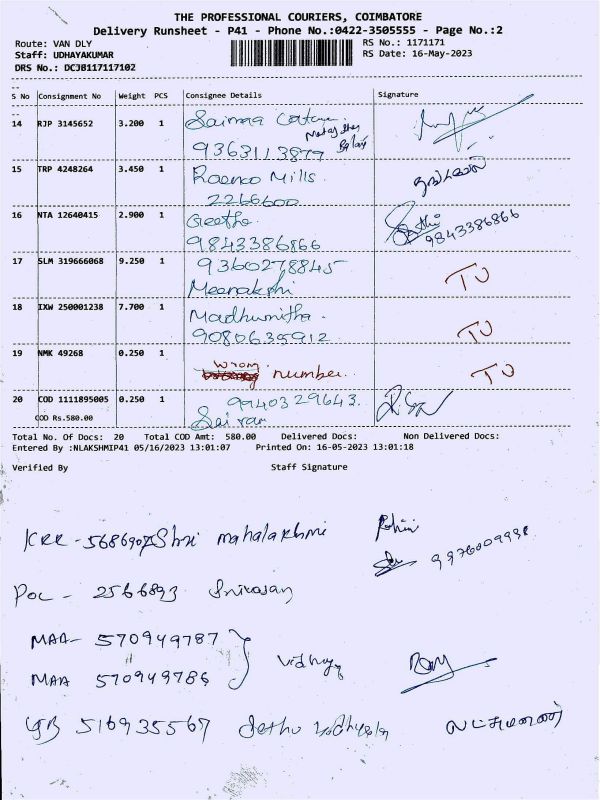 THE PROFESSIONAL COURIERS, COIMBATORE
Delivery Runsheet - P41 - Phone No.:0422-3505555 - Page No.:2
Route: VAN DLY RS No.: 1171171
Staff: UDHAYAKUMAR RS Date: 16-May-2023
DRS No.: DCJB117117102
S No Consignment No Weight PCS Consignee Details Signature
14 RJP 3145652 3.200 1 Sairaa
9363113877
15 TRP 4248264 3.450 1 Roenco Mills.
2266600
16 NTA 12640415 2.900 1 Geetha.
9843386866 9843386866
17 SLM 319666068 9.250 1 9360278845
Meenakshi TU
18 IXW 250001238 7.700 1 Madhumitha.
9080635912 TU
19 NMK 49268 0.250 1 wrong
number. TU
20 COD 1111895005 0.250 1 9940329643.
COD Rs.580.00 Sai ram
Total No. Of Docs: 20 Total COD Amt: 580.00 Delivered Docs: Non Delivered Docs:
Entered By :NLAKSHMIP41 05/16/2023 13:01:07 Printed On: 16-05-2023 13:01:18
Verified By Staff Signature
KRR - Shri mahalakshmi
9976009998
POL - 2566893 Srivasan
MAA - 570949787
MAA 570949786 vidhya
516935567 Sethu லட்சுமணன்